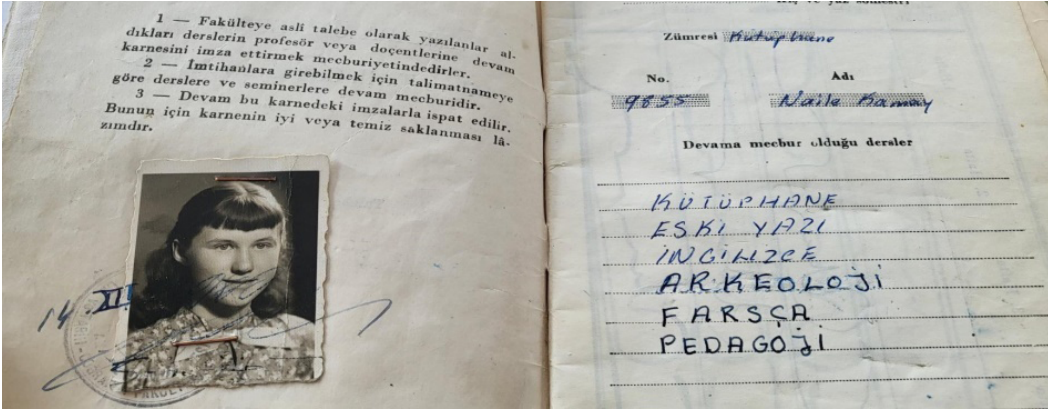 1 — Fakülteye asli talebe olarak yazılanlar al-
dıkları derslerin profesör veya doçentlerine devam
karnesini imza ettirmek mecburiyetindedirler.
2 — İmtihanlara girebilmek için talimatnameye
göre derslere ve seminerlere devam mecburidir.
3 — Devam bu karnedeki imzalarla ispat edilir.
Bunun için karnenin iyi veya temiz saklanması lâ-
zımdır.
14 XII
Zümresi Kütüphane
No. Adı
9855 Naile Kamay
Devama mecbur olduğu dersler
KÜTÜPHANE
ESKİ YAZI
İNGİLİZCE
ARKEOLOJİ
FARSÇA
PEDAGOJİ